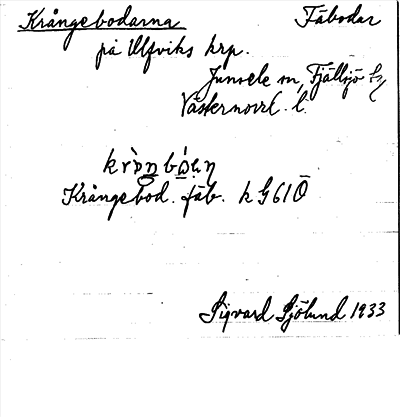 Krångebodarna Fäbodar
på Ulfviks krp.
Junsele sn, Fjällsjö
Västernorrl. l.
Krångebod. fäb. k G61Ö
Sigvard Sjölund 1933